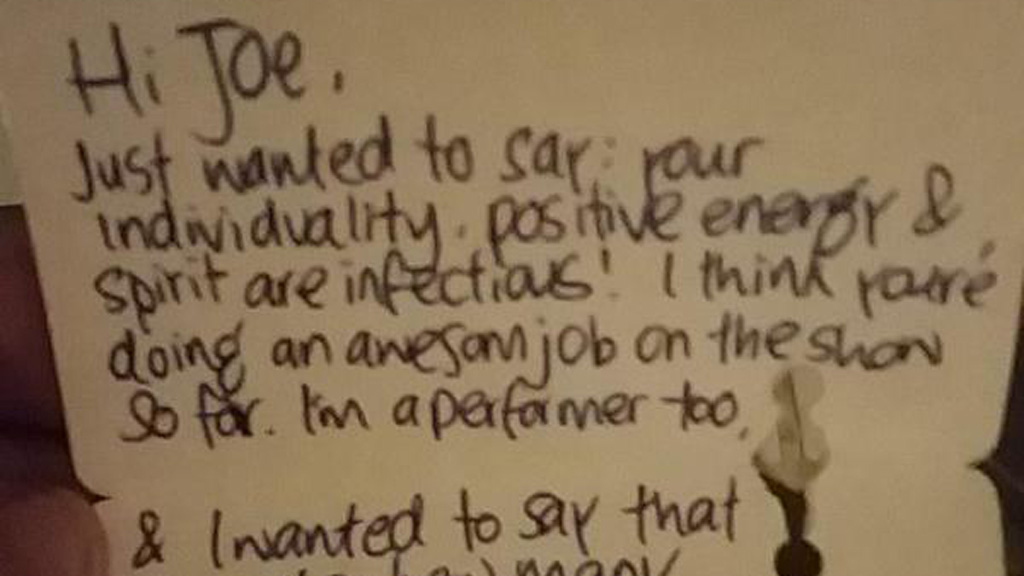 Hi Joe.
Just wanted to say: your
individuality, positive energy &
spirit are infectious! I think you're
doing an awesom job on the show
so far. I'm a performer too,
& I wanted to say that
many